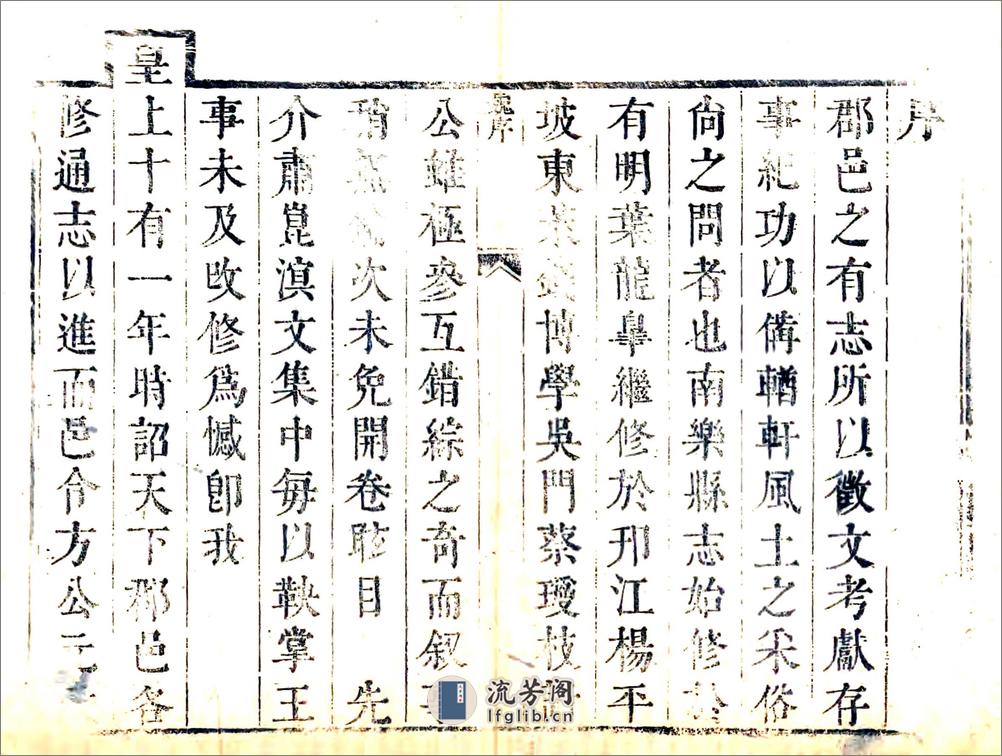 序
郡邑之有志所以徵文考獻存
事紀功以備輶軒風土之采俗
尚之問者也南樂縣志始修於
有明葉龍皐繼修於邗江楊平
坡東萊錢博學吳門蔡瓊枝
序
公雖極參互錯綜之奇而叙
稍無倫次未免開卷眩目 先
介肅崑滇文集中每以鞅掌王
事未及改修爲憾卽我
皇上十有一年時詔天下郡邑各
修通志以進而邑令方公元
流芳阁
lfglib.cn